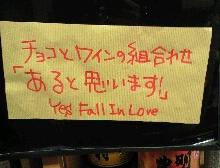 チョコとワインの組合わせ
「あると思います!」
Yes Fall In Love